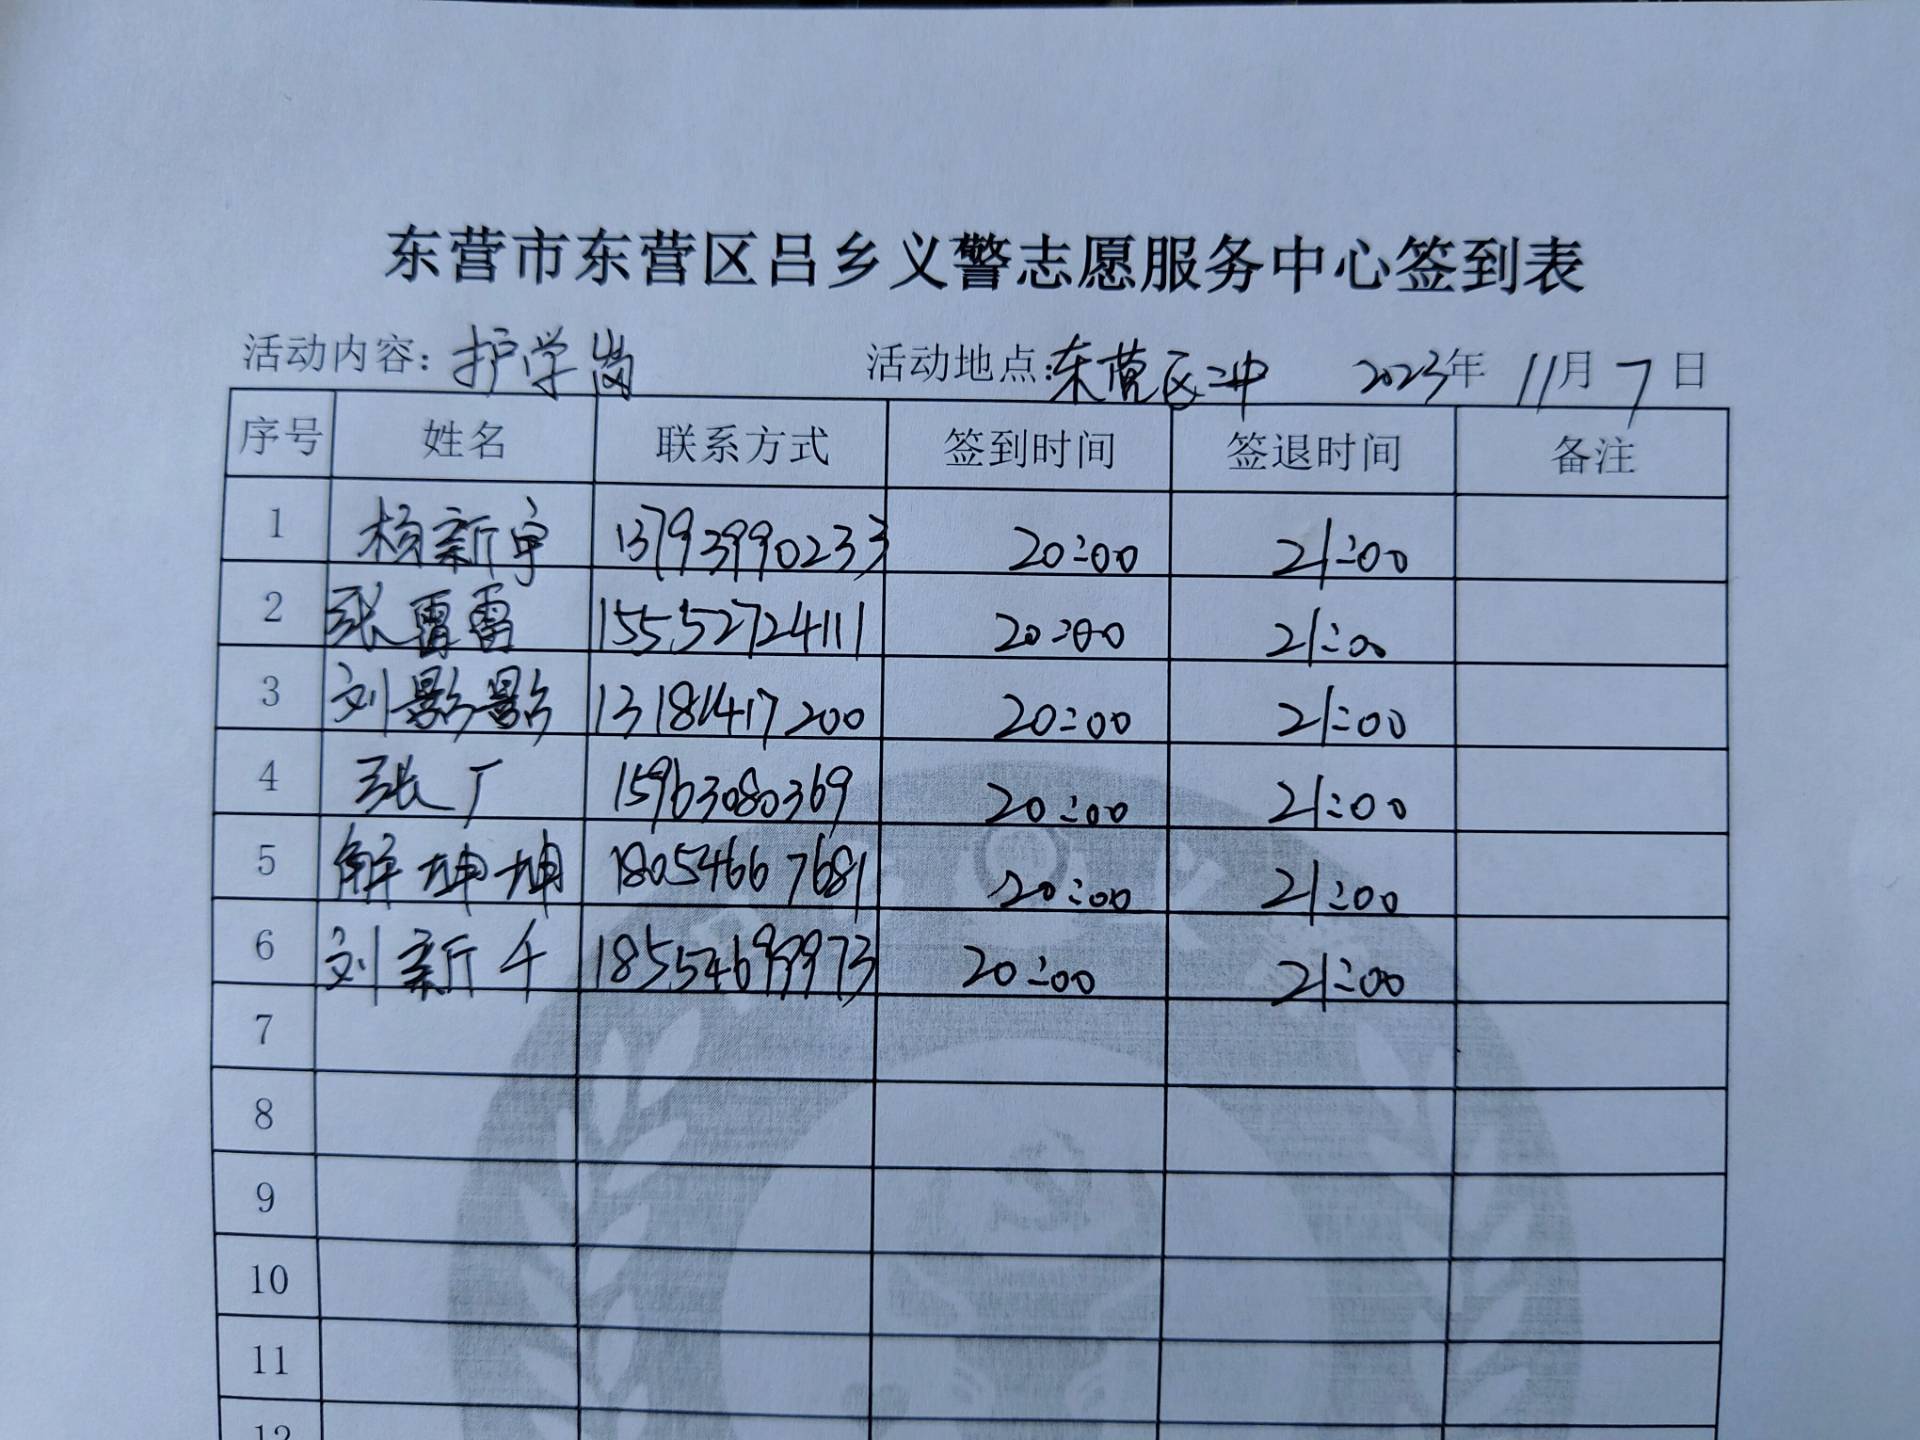 东营市东营区吕乡义警志愿服务中心签到表
活动内容：护学岗 活动地点：东营区二中 2023年 11月 7 日
序号 姓名 联系方式 签到时间 签退时间 备注
1 杨新宇 13793990233 20:00 21:00
2 张雷雷 15552724111 20:00 21:00
3 刘影影 13181417200 20:00 21:00
4 张广 15963080369 20:00 21:00
5 解坤坤 18054667681 20:00 21:00
6 刘新千 18554699973 20:00 21:00
7
8
9
10
11
12